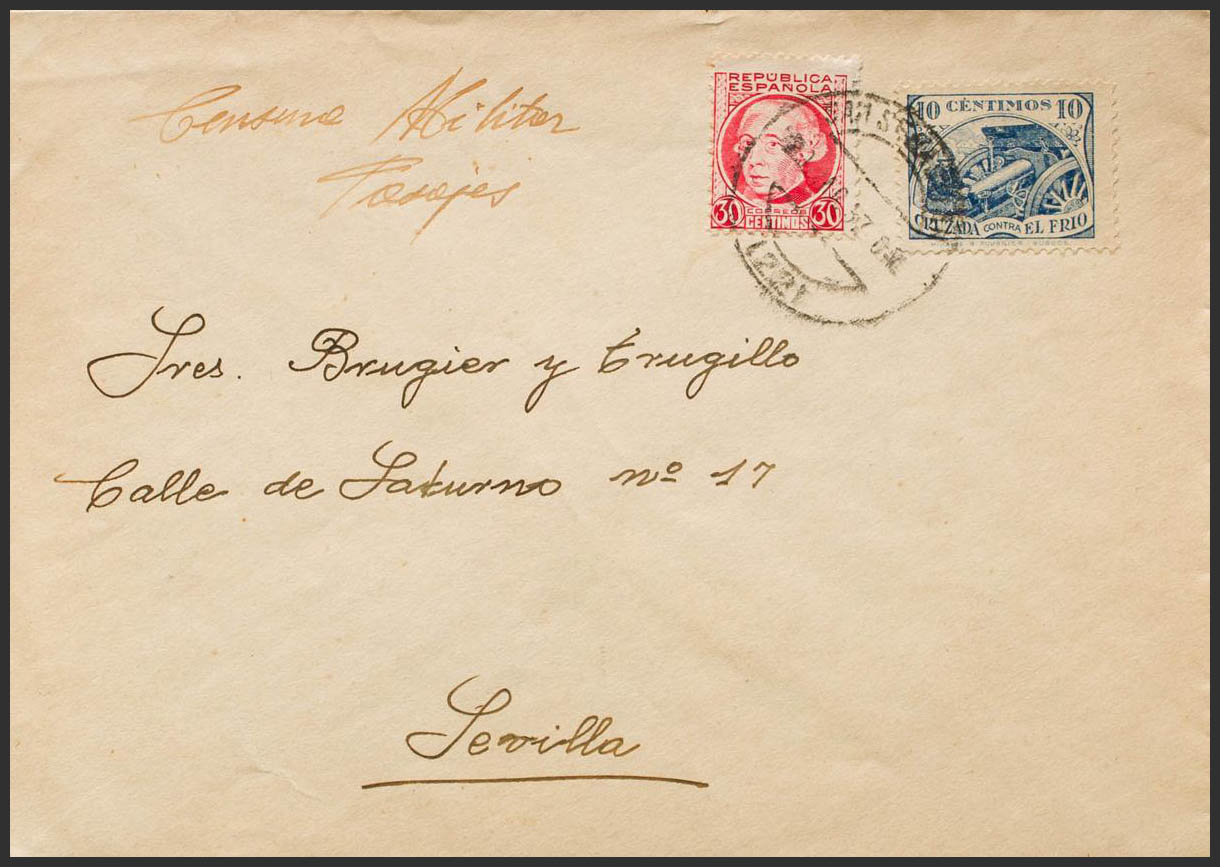 Censura Militar
Pasajes
REPÚBLICA
ESPAÑOLA
30 CORREOS 30
CENTIMOS
10 CÉNTIMOS 10
CRUZADA CONTRA EL FRIO
Sres. Brugier y Trugillo
Calle de Saturno nº 17
Sevilla